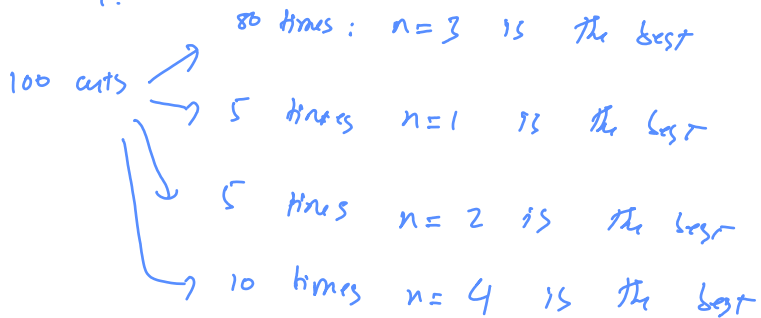 80 times : n=3 is the best
100 cuts
5 times n=1 is the best
5 times n=2 is the best
10 times n=4 is the best